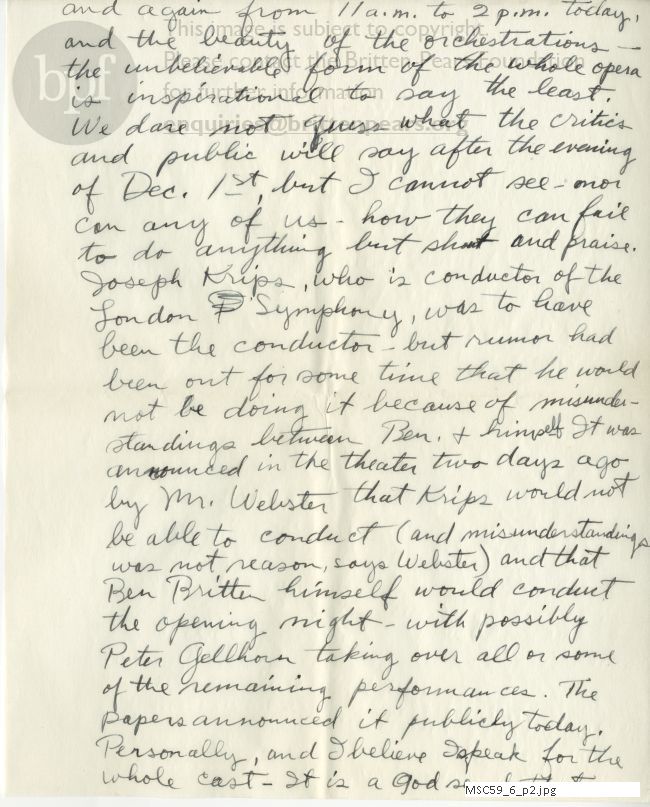 and again from 11 a.m. to 2 p.m. today,
This image is subject to copyright.
and the beauty of the orchestrations —
Please contact the Britten-Pears Foundation
the unbelievable form of the whole opera
for further information
is inspirational to say the least.
bpf
We dare not guess what the critics
enquiries@brittenpears.org
and public will say after the evening
of Dec. 1st, but I cannot see – nor
can any of us – how they can fail
to do anything but shout and praise.
Joseph Krips, who is conductor of the
London Symphony, was to have
been the conductor – but rumor had
been out for some time that he would
not be doing it because of misunder-
standings between Ben. + himself It was
announced in the theater two days ago
by Mr. Webster that Krips would not
be able to conduct (and misunderstandings
was not reason, says Webster) and that
Ben Britten himself would conduct
the opening night – with possibly
Peter Gellhorn taking over all or some
of the remaining performances. The
papers announced it publicly today.
Personally, and I believe I speak for the
whole cast – It is a God
MSC59_6_p2.jpg